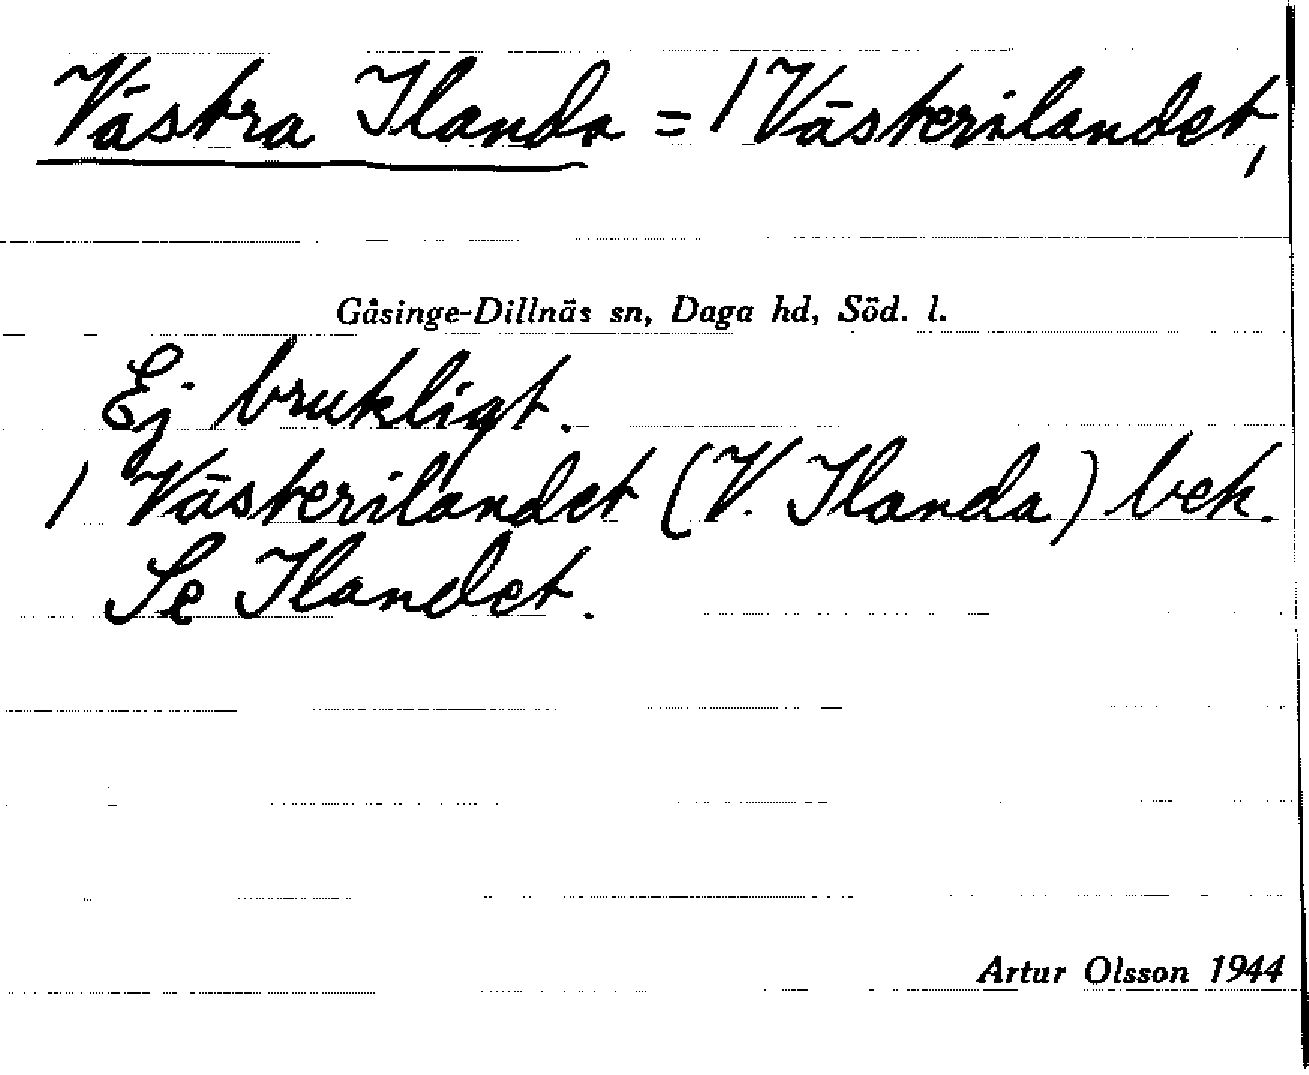 Västra Ilanda = / Västerilandet,
Gåsinge-Dillnäs sn, Daga hd, Söd. l.
Ej brukligt.
/ Västerilandet (V. Ilanda) bek.
Se Ilandet.
Artur Olsson 1944